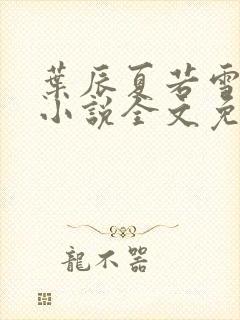 葉辰夏若雪
小說全文免
龍不器